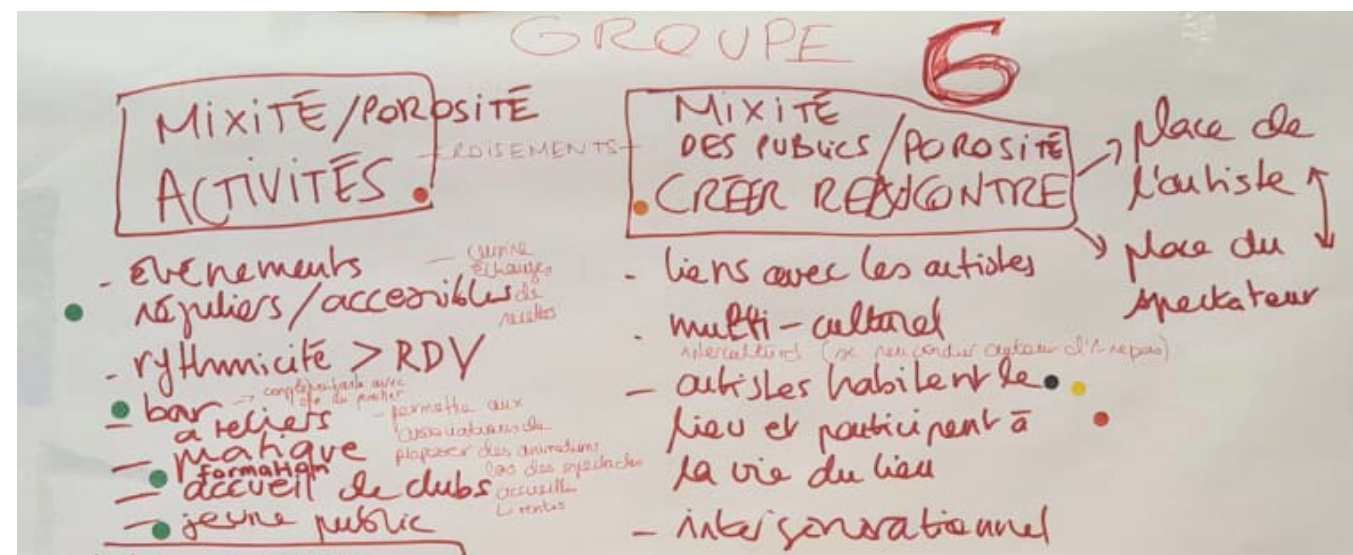 GROUPE 6
MIXITÉ / POROSITÉ
ACTIVITÉS
CROISEMENTS
- Evénements
réguliers / accessibles
- cuisine
échanges
de
recettes
- rythmicité > RDV
- bar
→ complémentaire avec
ateliers
- pratique
formation
- permettre aux
associations de
proposer des animations
lors des spectacles
- accueil de clubs
- jeune public
MIXITÉ
DES PUBLICS / POROSITÉ
CRÉER RENCONTRE
→ place de
l'artiste
→ place du
spectateur
- liens avec les artistes
- multi-culturel
interculturel (se rencontrer autour d'1 repas)
- artistes habitent le
lieu et participent à
la vie du lieu
- intergénérationnel